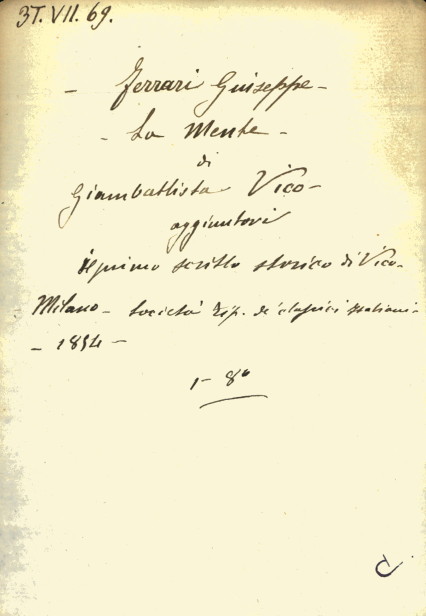 37. VII. 69.
- Ferrari Guiseppe -
- La Mente -
di
Giambattista Vico -
aggiuntovi
il primo scritto storico di Vico -
Milano - Società Tip. de' classici Italiani -
- 1854 -
1 - 8°
C